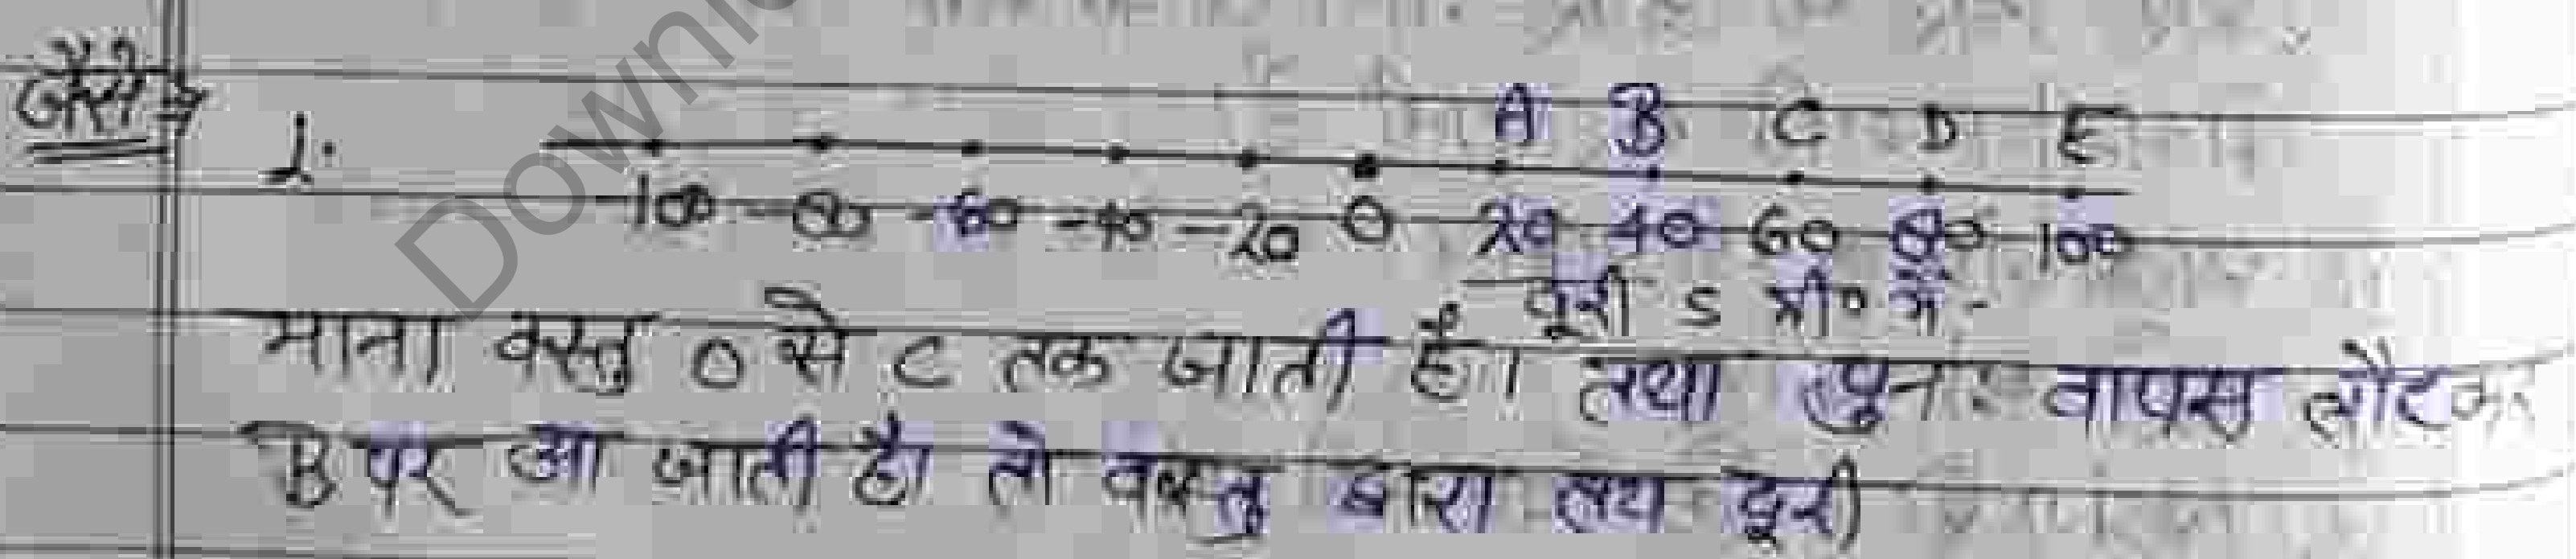 जैसे →
1. A B C D E
-100 -80 -60 -40 -20 0 20 40 60 80 100
दूरी S मी० में -
माना वस्तु O से C तक जाती है। तथा पुनः वापस लौटकर
B पर आ जाती है। तो वस्तु द्वारा तय दूरी